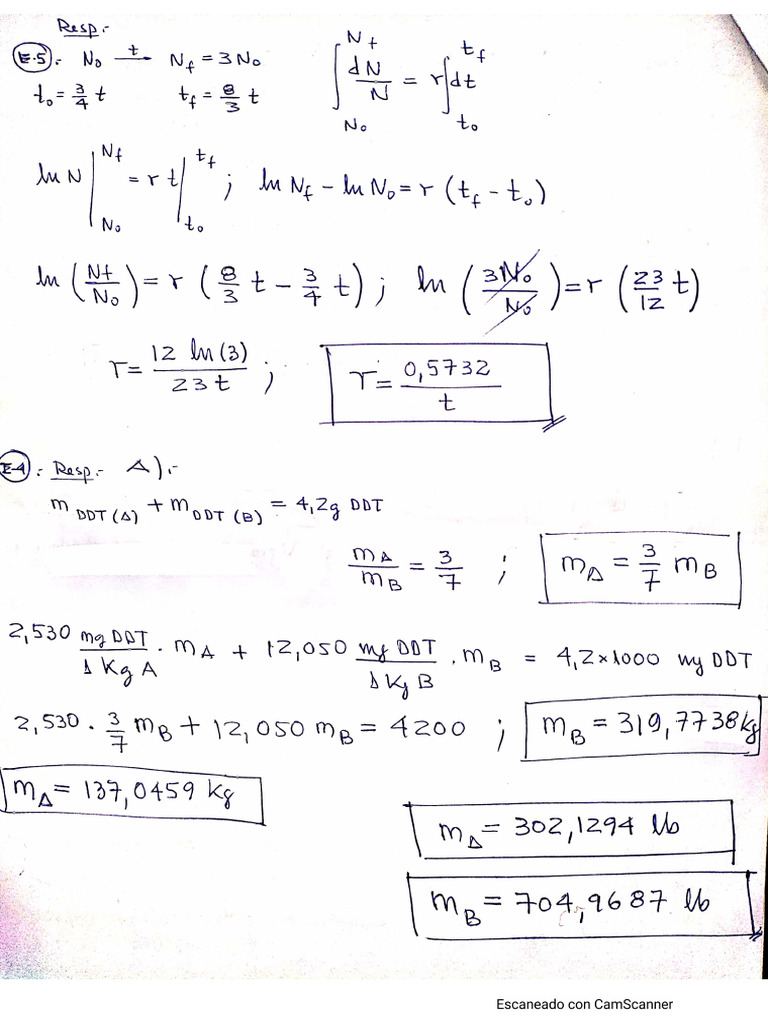 Resp:-
E-5:- N₀ —t→ N_f = 3N₀
t₀ = 3/4 t    t_f = 8/3 t    ∫_{N₀}^{Nt} dN/N = r ∫_{t₀}^{t_f} dt
ln N |_{N₀}^{N_f} = r t |_{t₀}^{t_f} ; ln N_f − ln N₀ = r (t_f − t₀)
ln (Nt/N₀) = r (8/3 t − 3/4 t) ; ln (3N₀/N₀) = r (23/12 t)
r = 12 ln(3)/23 t ; r = 0,5732/t
E-4: Resp:- A):-
m_DDT(A) + m_DDT(B) = 4,2g DDT
m_A/m_B = 3/7 ; m_A = 3/7 m_B
2,530 mg DDT/1 Kg A · m_A + 12,050 mg DDT/1 Kg B · m_B = 4,2×1000 mg DDT
2,530 · 3/7 m_B + 12,050 m_B = 4200 ; m_B = 319,7738 kg
m_A = 137,0459 kg
m_A = 302,1294 lb
m_B = 704,9687 lb
Escaneado con CamScanner